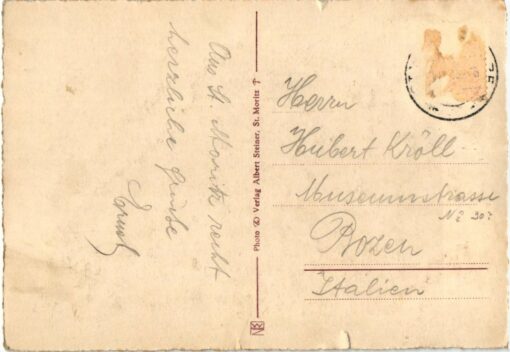 Aus St. Moritz recht
herzliche Grüße
Ernst
Photo Verlag Albert Steiner, St. Moritz
Herrn
Hubert Kröll
Museumstrasse
No 30
Bozen
Italien